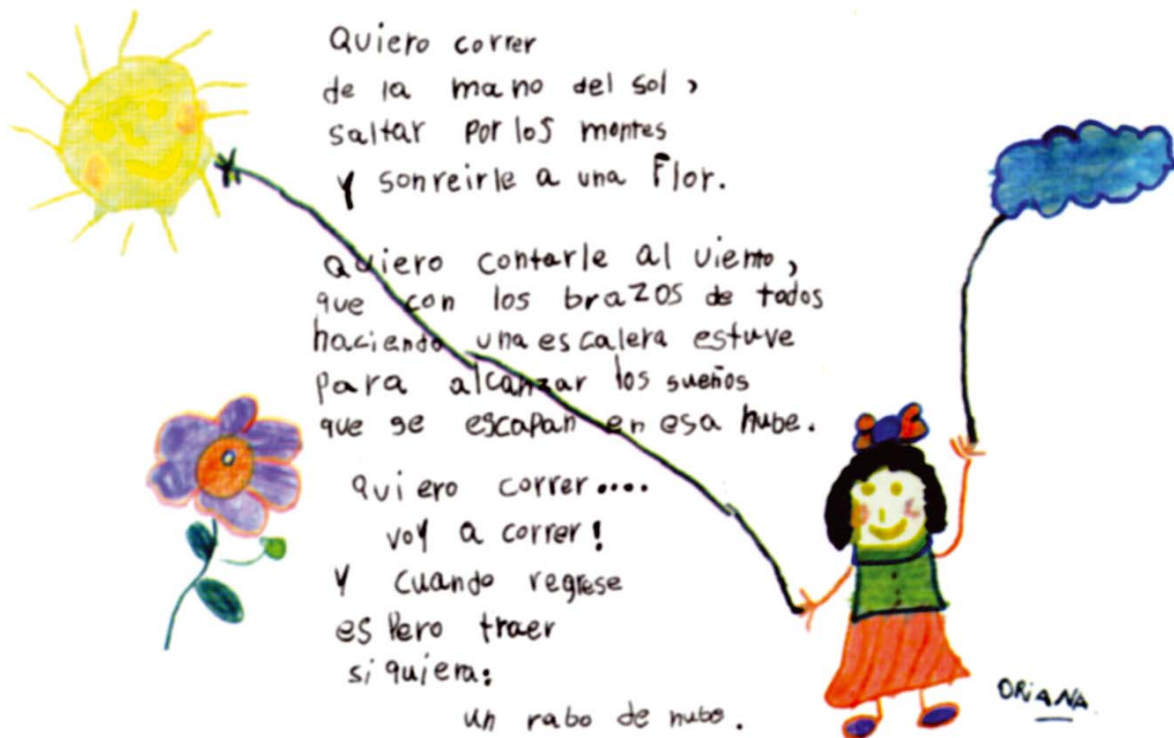 Quiero correr
de la mano del sol,
saltar por los montes
y sonreirle a una Flor.
Quiero contarle al viento,
que con los brazos de todos
haciendo una escalera estuve
para alcanzar los sueños
que se escapan en esa nube.
quiero correr....
voy a correr!
Y cuando regrese
espero traer
siquiera:
un rabo de nube.
ORiANA